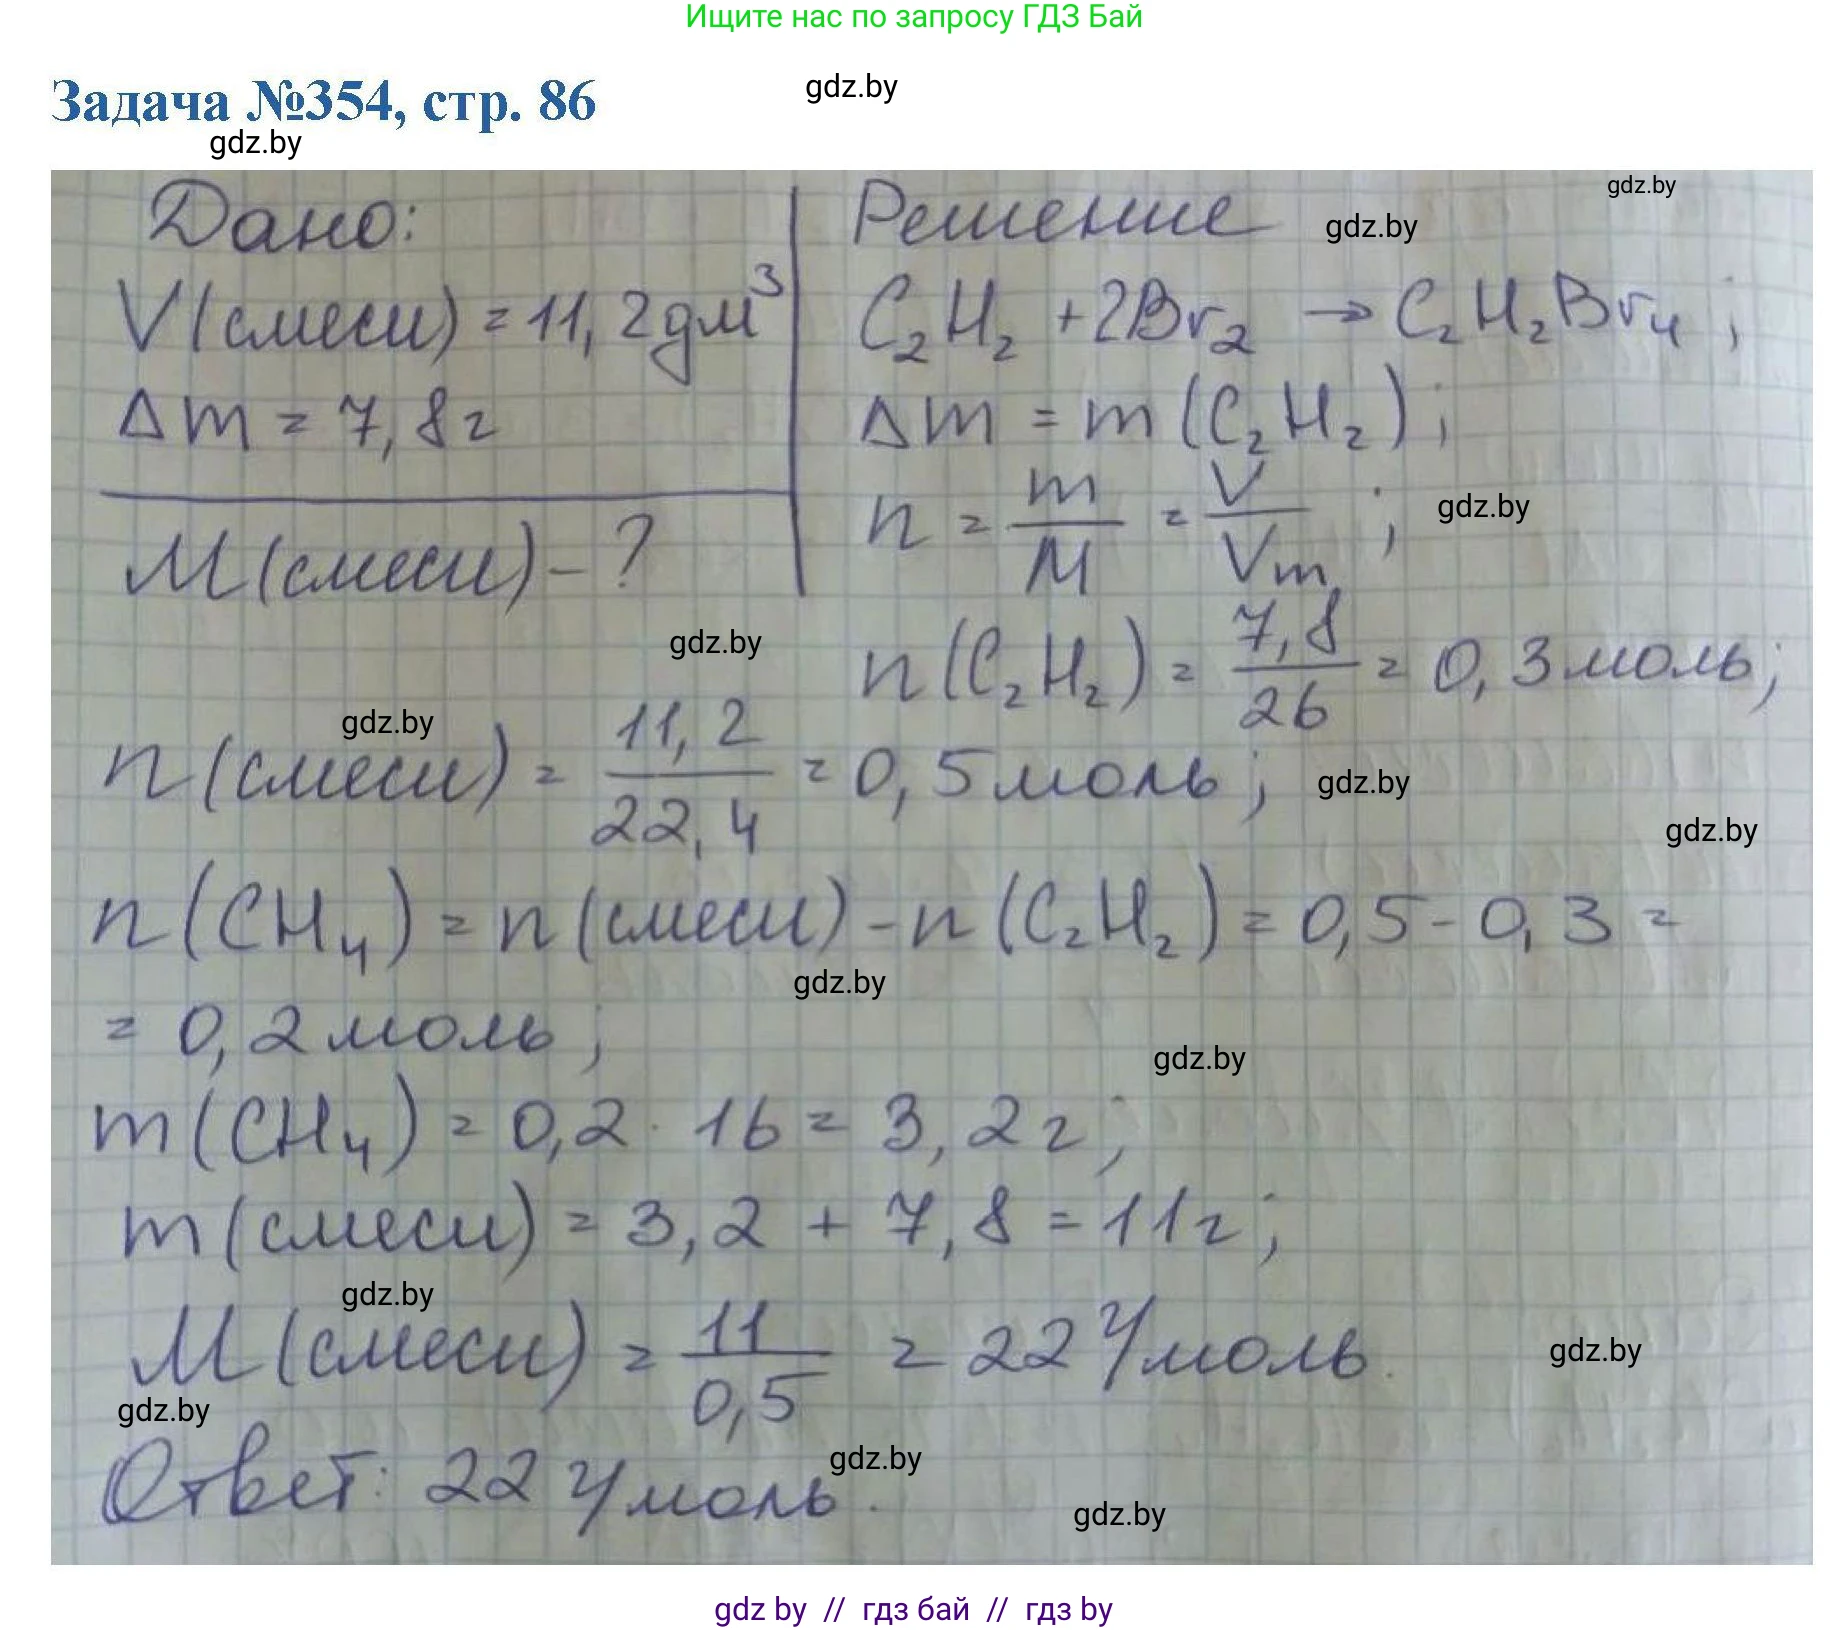 Ищите нас по запросу ГДЗ Бай
Задача №354, стр. 86
gdz.by
gdz.by
gdz.by
Дано:
V(смеси) = 11,2дм³
Δm = 7,8г
M(смеси) - ?
Решение
gdz.by
C₂H₂ + 2Br₂ → C₂H₂Br₄;
Δm = m(C₂H₂);
n = m/M = V/Vm;
gdz.by
gdz.by
n(C₂H₂) = 7,8/26 = 0,3моль;
gdz.by
n(смеси) = 11,2/22,4 = 0,5моль;
gdz.by
gdz.by
n(CH₄) = n(смеси) - n(C₂H₂) = 0,5 - 0,3 =
gdz.by
= 0,2моль;
gdz.by
m(CH₄) = 0,2 · 16 = 3,2г;
m(смеси) = 3,2 + 7,8 = 11г;
gdz.by
M(смеси) = 11/0,5 = 22г/моль.
gdz.by
gdz.by
gdz.by
Ответ: 22г/моль.
gdz.by
gdz by // гдз бай // гдз by